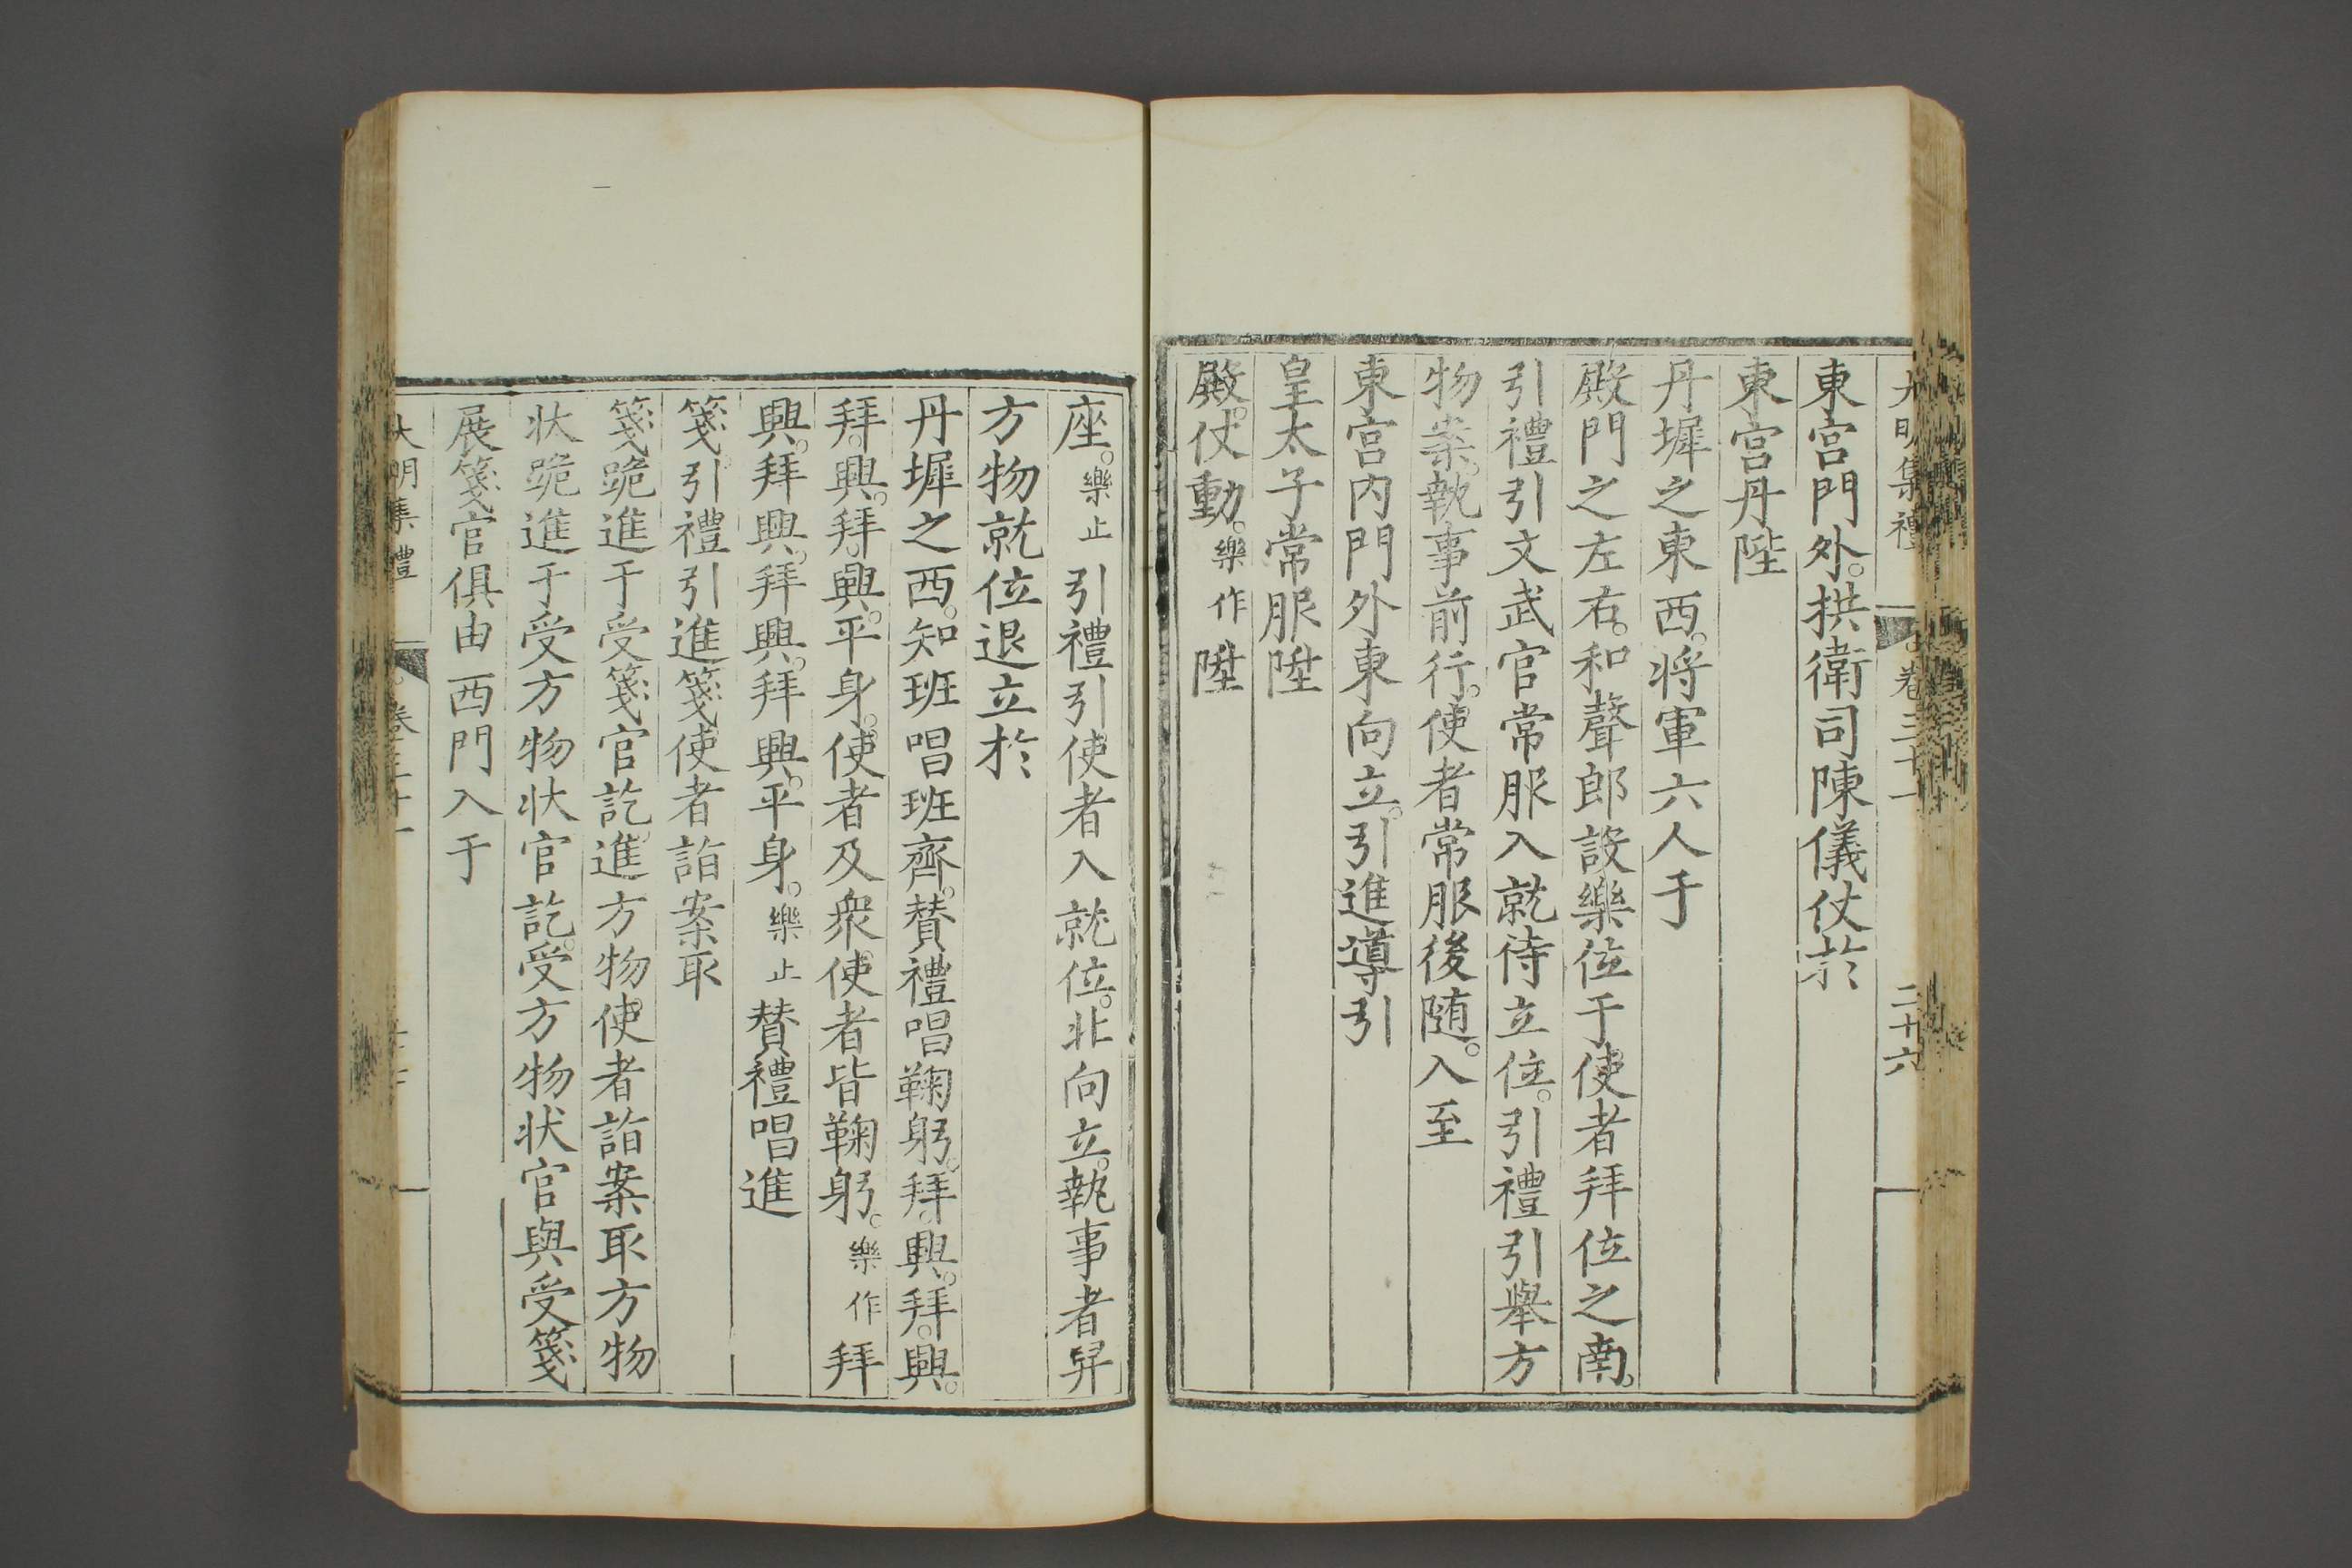 大明集禮 卷三十一 二十六
東宮門外。拱衛司陳儀仗於
東宮丹陛
丹墀之東西。将軍六人于
殿門之左右。和聲郎設樂位于使者拜位之南。
引禮引文武官常服入就待立位。引禮引舉方
物案。執事前行。使者常服後随。入至
東宮內門外東向立。引進導引
皇太子常服陞
殿。仗動。樂作陞
座。樂止引禮引使者入就位。北向立。執事者舁
方物就位退立於
丹墀之西。知班唱班齊。賛禮唱鞠躬。拜。興。拜。興。
拜。興。拜。興。平身。使者及衆使者皆鞠躬。樂作拜
興。拜興。拜興。拜興。平身。樂止賛禮唱進
箋。引禮引進箋使者詣案取
箋跪進于受箋官訖。進方物使者詣案取方物
状跪進于受方物状官訖。受方物状官與受箋
展箋官俱由西門入于
大明集禮 卷三十一